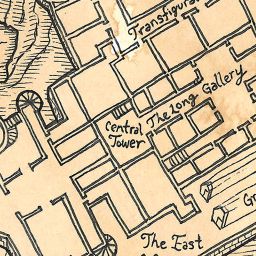 Transfigura
The Long Gallery
Central
Tower
Gr
The East